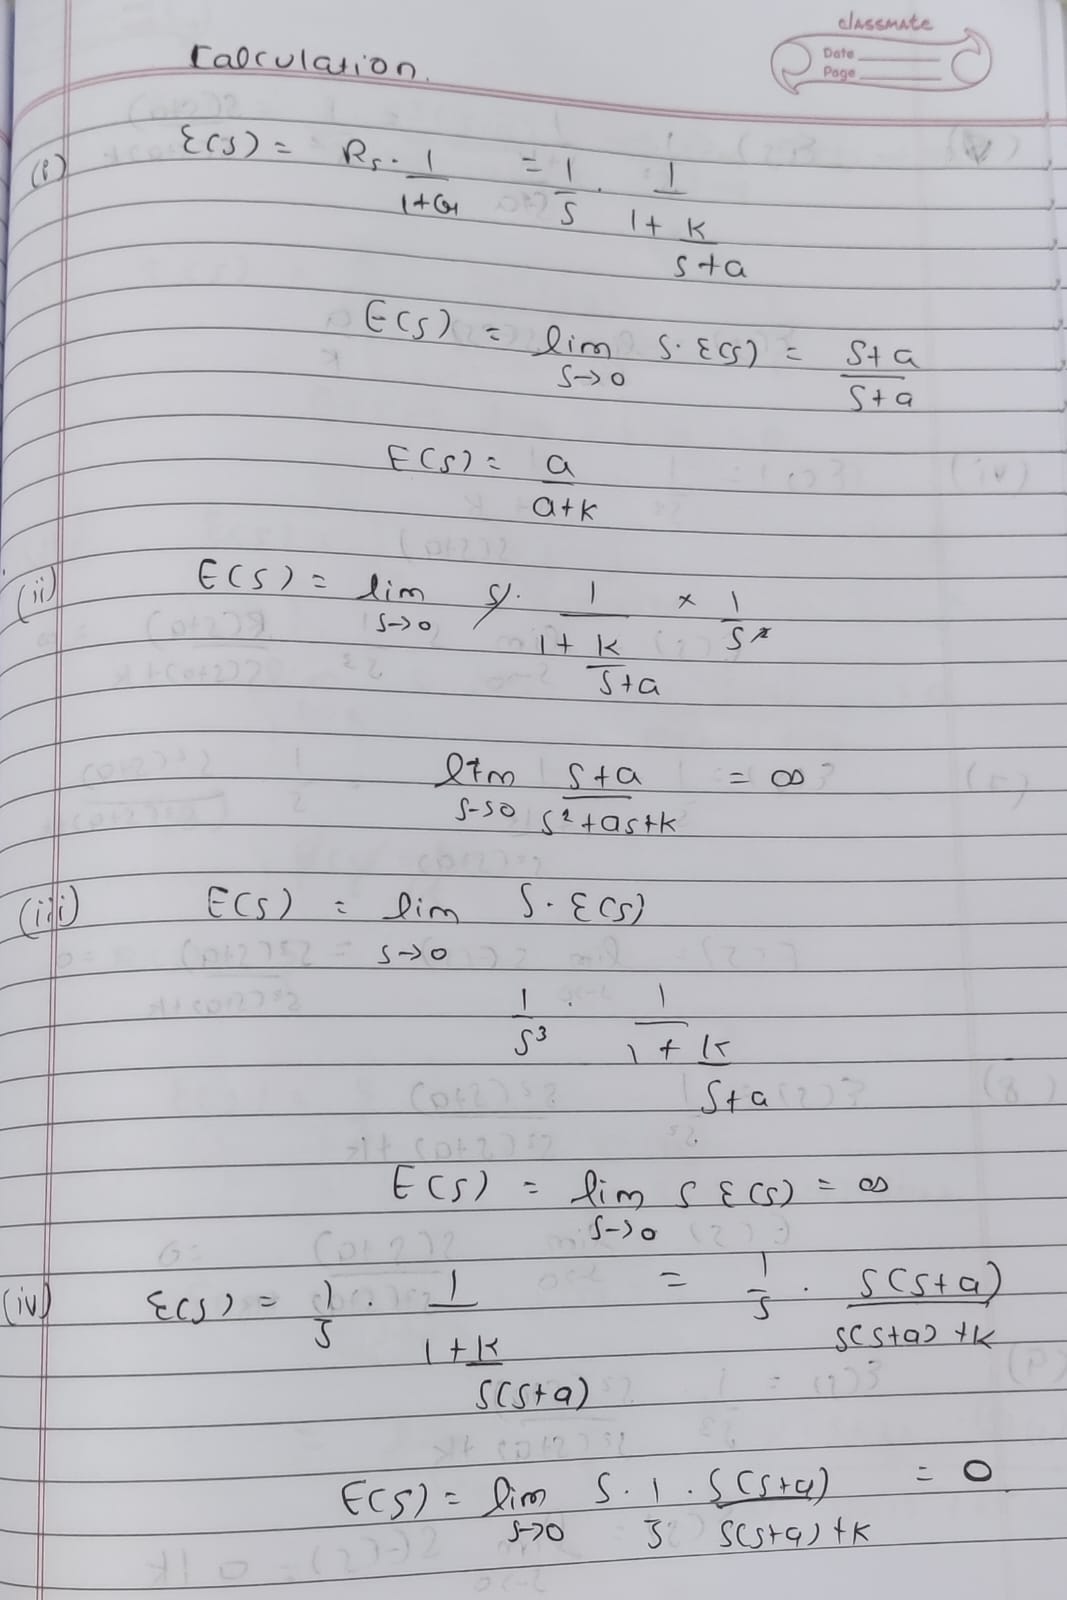 classmate
Date
Page
Calculation.
(i) ε(s) = Rs . 1/(1+G) = 1/s . 1/(1 + k/(s+a))
E(s) = lim s→0 s. ε(s) = (s+a)/(s+a)
E(s) = a/(a+k)
(ii) E(s) = lim s→0 s. 1/(1 + k/(s+a)) × 1/s²
lim s→0 (s+a)/(s²+as+k) = ∞
(iii) E(s) = lim s→0 s. ε(s)
1/s³ . 1/(1 + k/(s+a))
E(s) = lim s→0 s ε(s) = ∞
(iv) ε(s) = 1/s . 1/(1 + k/(s(s+a))) = 1/s . s(s+a)/(s(s+a)+k)
E(s) = lim s→0 s . 1/s . s(s+a)/(s(s+a)+k) = 0